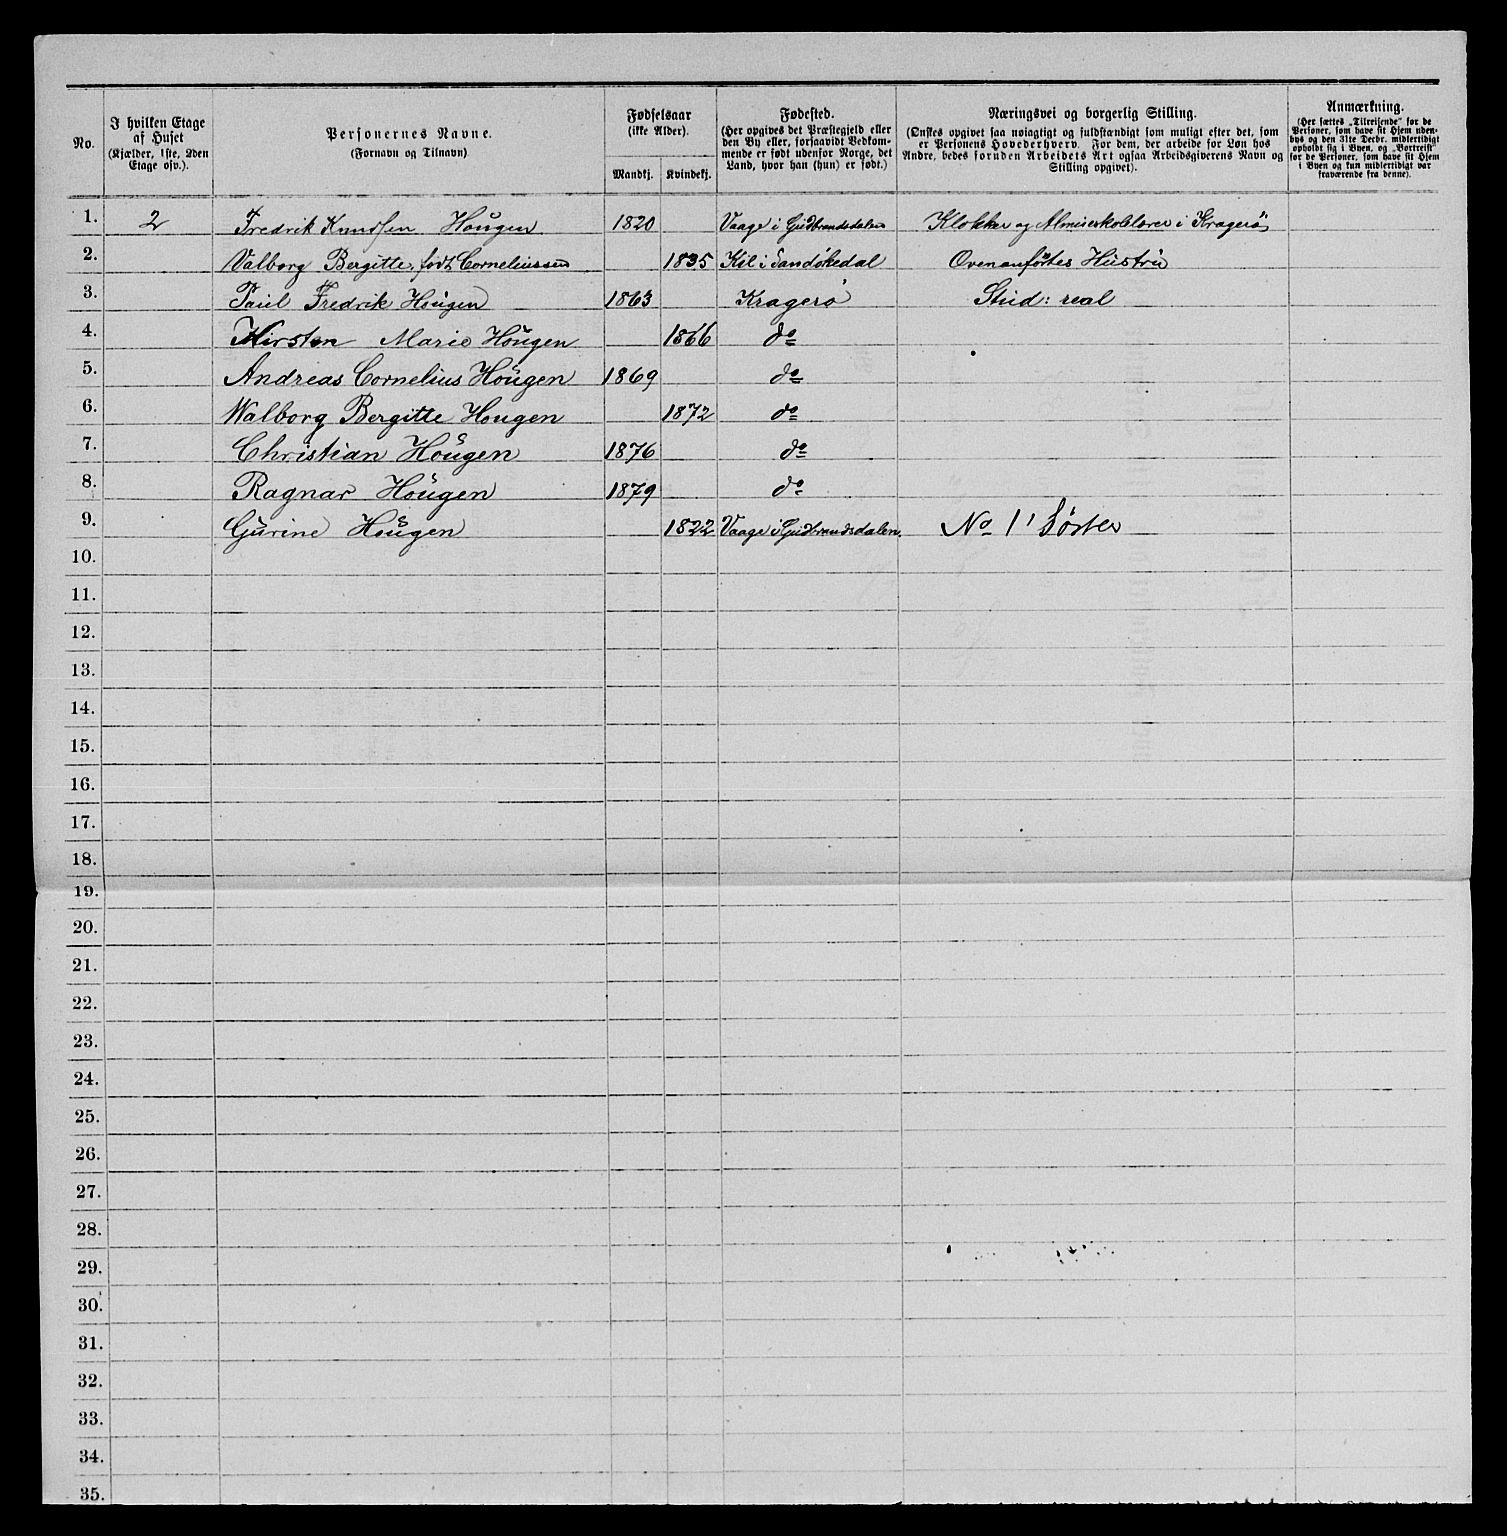 No.
I hvilken Etage
af Huset
(Kjælder, 1ste, 2den
Etage osv.).
Personernes Navne.
(Fornavn og Tilnavn)
Fødselsaar
(ikke Alder).
Mandkj. Kvindekj.
Fødested.
(Her opgives det Præstegjeld eller
den By eller, forsaavidt Vedkom-
mende er født udenfor Norge, det
Land, hvor han (hun) er født.)
Næringsvei og borgerlig Stilling.
(Ønskes opgivet saa nøiagtigt og fuldstændigt som muligt efter det, som
er Personens Hovederhverv. For dem, der arbeide for Løn hos
Andre, bedes foruden Arbeidets Art ogsaa Arbeidsgiverens Navn og
Stilling opgivet).
Anmærkning.
(Her sættes „Tilreisende" for de
Personer, som have sit Hjem uden-
bys og den 31te Decbr. midlertidigt
opholdt sig i Byen, og „Bortreist"
for de Personer, som have sit Hjem
i Byen og kun midlertidigt var
fraværende fra denne).
1. 2 Fredrik Knudsen Hougen 1820 Vaage i Gudbrandsdalen Klokker og Almueskolelærer i Kragerö
2. Valborg Bergitte, födt Corneliussen 1835 Kil i Sandökedal Ovenanförtes Hustru
3. Paul Fredrik Hougen 1863 Kragerö Stud: real
4. Kirsten Marie Hougen 1866 do
5. Andreas Cornelius Hougen 1869 do
6. Walborg Bergitte Hougen 1872 do
7. Christian Hougen 1876 do
8. Ragnar Hougen 1879 do
9. Gurine Hougen 1822 Vaage i Gudbrandsdalen. No 1' Söster
10.
11.
12.
13.
14.
15.
16.
17.
18.
19.
20.
21.
22.
23.
24.
25.
26.
27.
28.
29.
30.
31.
32.
33.
34.
35.